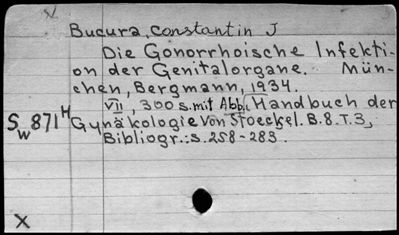 Bucura, Constantin J
Die Gonorrhoische Infekti-
on der Genitalorgane. Mün-
chen, Bergmann, 1934.
VII, 300 s. mit Abb. (Handbuch der
Sw871H Gynäkologie von Stoeckel. B.8.T.3,
Bibliogr.: s. 258-283.
X